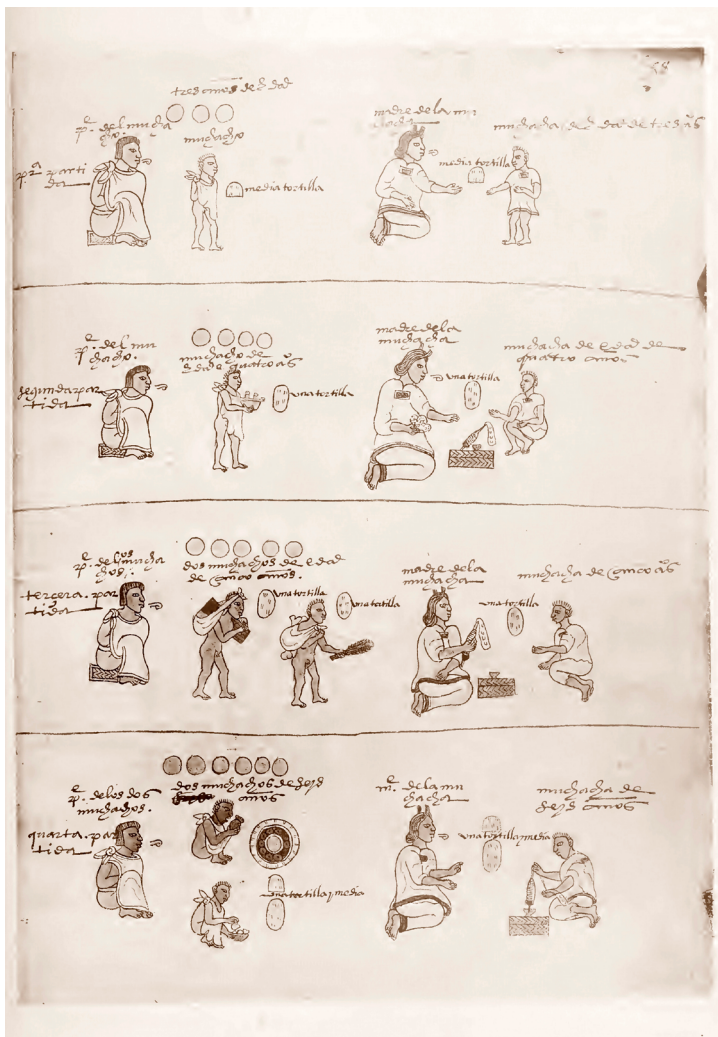 58
tres años de hedad
pe. del mucha
cho.
muchacho
pra parti
da
media tortilla
madre de la mu
chacha
muchacha de hedad de tres aos
media tortilla
pe. del mu
chacho.
segunda par
tida
muchacho de
hedad de quatro aos
una tortilla
madre de la
muchacha
muchacha de edad de
quatro años
una tortilla
pe. de los mucha
chos.
tercera. par
tida
dos muchachos de edad
de cinco años.
una tortilla
una tortilla
madre de la
muchacha
muchacha de cinco aos
una tortilla
pe. de los dos
muchachos.
quarta. par
tida
dos muchachos de seis
años
una tortilla y media
me. de la mu
chacha
muchacha de
seis años
una tortilla y media